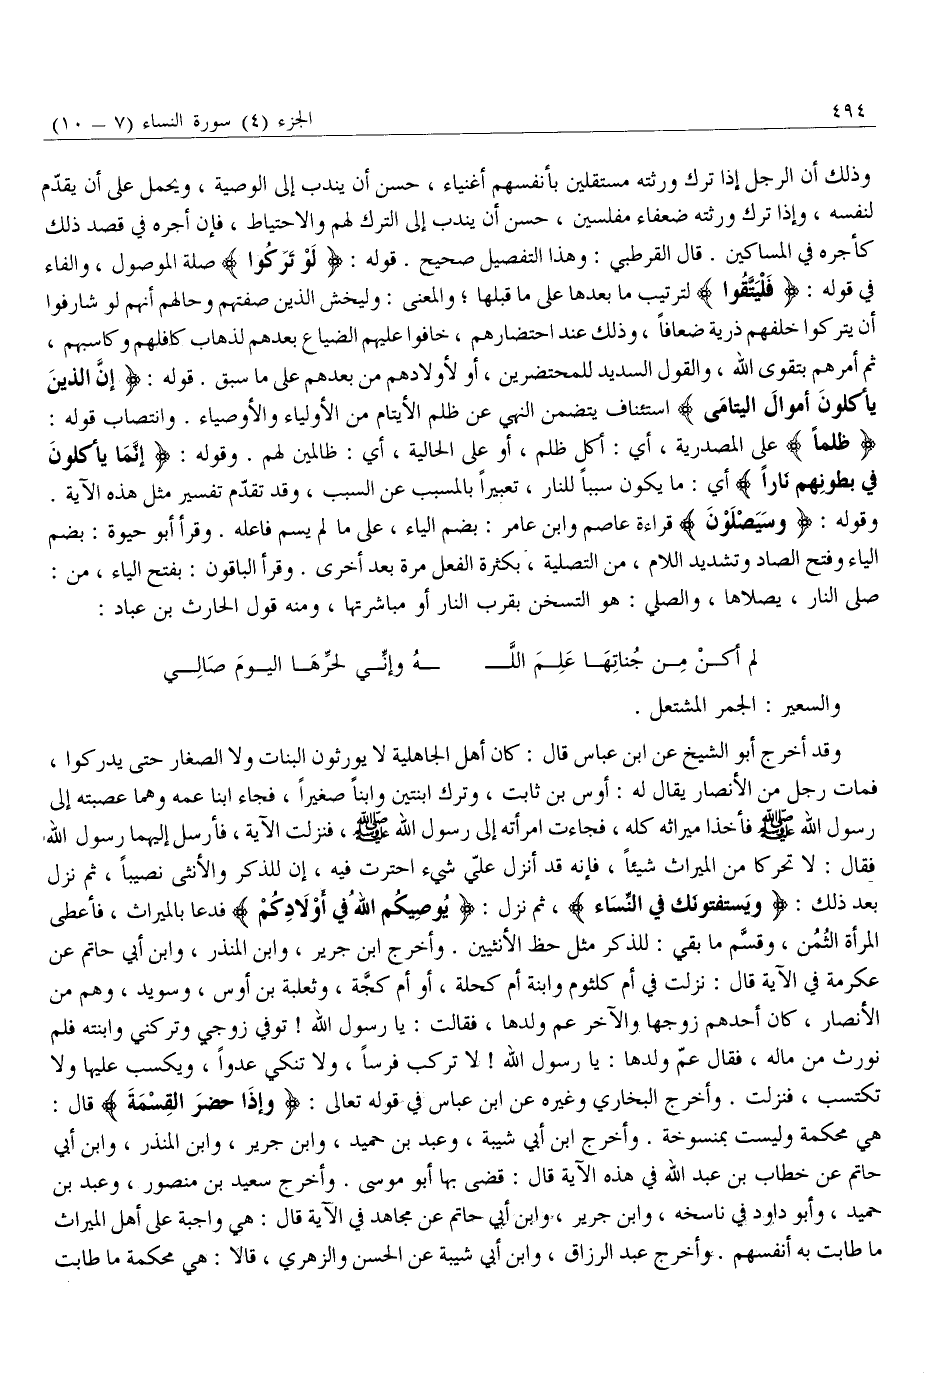 ٤٩٤
الجزء (٤) سورة النساء (٧ – ١٠)
وذلك أن الرجل إذا ترك ورثته مستقلين بأنفسهم أغنياء ، حسن أن يندب إلى الوصية ، ويحمل على أن يقدّم
لنفسه ، وإذا ترك ورثته ضعفاء مفلسين ، حسن أن يندب إلى الترك لهم والاحتياط ، فإن أجره في قصد ذلك
كأجره في المساكين . قال القرطبي : وهذا التفصيل صحيح . قوله : ﴿ لَوْ تَرَكُوا ﴾ صلة الموصول ، والفاء
في قوله : ﴿ فَلْيَتَّقُوا ﴾ لترتيب ما بعدها على ما قبلها ؛ والمعنى : وليخش الذين صفتهم وحالهم أنهم لو شارفوا
أن يتركوا خلفهم ذرية ضعافاً ، وذلك عند احتضارهم ، خافوا عليهم الضياع بعدهم لذهاب كافلهم وكاسبهم ،
ثم أمرهم بتقوى الله ، والقول السديد للمحتضرين ، أو لأولادهم من بعدهم على ما سبق . قوله : ﴿ إنَّ الذينَ
يأكلونَ أموالَ اليتامَى ﴾ استئناف يتضمن النهي عن ظلم الأيتام من الأولياء والأوصياء . وانتصاب قوله :
﴿ ظلماً ﴾ على المصدرية ، أي : أكل ظلم ، أو على الحالية ، أي : ظالمين لهم . وقوله : ﴿ إنَّمَا يأكلونَ
في بطونِهم نَاراً ﴾ أي : ما يكون سبباً للنار ، تعبيراً بالمسبب عن السبب ، وقد تقدّم تفسير مثل هذه الآية .
وقوله : ﴿ وسَيَصْلَوْنَ ﴾ قراءة عاصم وابن عامر : بضم الياء ، على ما لم يسم فاعله . وقرأ أبو حيوة : بضم
الياء وفتح الصاد وتشديد اللام ، من التصلية ، بكثرة الفعل مرة بعد أخرى . وقرأ الباقون : بفتح الياء ، من :
صلى النار ، يصلاها ، والصلي : هو التسخن بقرب النار أو مباشرتها ، ومنه قول الحارث بن عباد :
لم أكـنْ مِـن جُناتِهَـا عَلِـمَ اللَّـــ ـــهُ وإنِّـي لحرِّهَـا اليـومَ صَالِـي
والسعير : الجمر المشتعل .
وقد أخرج أبو الشيخ عن ابن عباس قال : كان أهل الجاهلية لا يورثون البنات ولا الصغار حتى يدركوا ،
فمات رجل من الأنصار يقال له : أوس بن ثابت ، وترك ابنتين وابناً صغيراً ، فجاء ابنا عمه وهما عصبته إلى
رسول الله ﷺ فأخذا ميراثه كله ، فجاءت امرأته إلى رسول الله ﷺ ، فنزلت الآية ، فأرسل إليهما رسول الله،
فقال : لا تحركا من الميراث شيئاً ، فإنه قد أنزل عليّ شيء احترت فيه ، إن للذكر والأنثى نصيباً ، ثم نزل
بعد ذلك : ﴿ ويَستفتونَك في النِّسَاء ﴾ ، ثم نزل : ﴿ يُوصيكُم اللهُ في أوْلَادِكُمْ ﴾ فدعا بالميراث ، فأعطى
المرأة الثُمُن ، وقسَّم ما بقي : للذكر مثل حظ الأنثيين . وأخرج ابن جرير ، وابن المنذر ، وابن أبي حاتم عن
عكرمة في الآية قال : نزلت في أم كلثوم وابنة أم كحلة ، أو أم كجَّة ، وثعلبة بن أوس ، وسويد ، وهم من
الأنصار ، كان أحدهم زوجها والآخر عم ولدها ، فقالت : يا رسول الله ! توفي زوجي وتركني وابنته فلم
نورث من ماله ، فقال عمّ ولدها : يا رسول الله ! لا تركب فرساً ، ولا تنكي عدواً ، ويكسب عليها ولا
تكتسب ، فنزلت . وأخرج البخاري وغيره عن ابن عباس في قوله تعالى : ﴿ وإذَا حضرَ القِسْمَةَ ﴾ قال :
هي محكمة وليست بمنسوخة . وأخرج ابن أبي شيبة ، وعبد بن حميد ، وابن جرير ، وابن المنذر ، وابن أبي
حاتم عن خطاب بن عبد الله في هذه الآية قال : قضى بها أبو موسى . وأخرج سعيد بن منصور ، وعبد بن
حميد ، وأبو داود في ناسخه ، وابن جرير ، وابن أبي حاتم عن مجاهد في الآية قال : هي واجبة على أهل الميراث
ما طابت به أنفسهم . وأخرج عبد الرزاق ، وابن أبي شيبة عن الحسن والزهري ، قالا : هي محكمة ما طابت